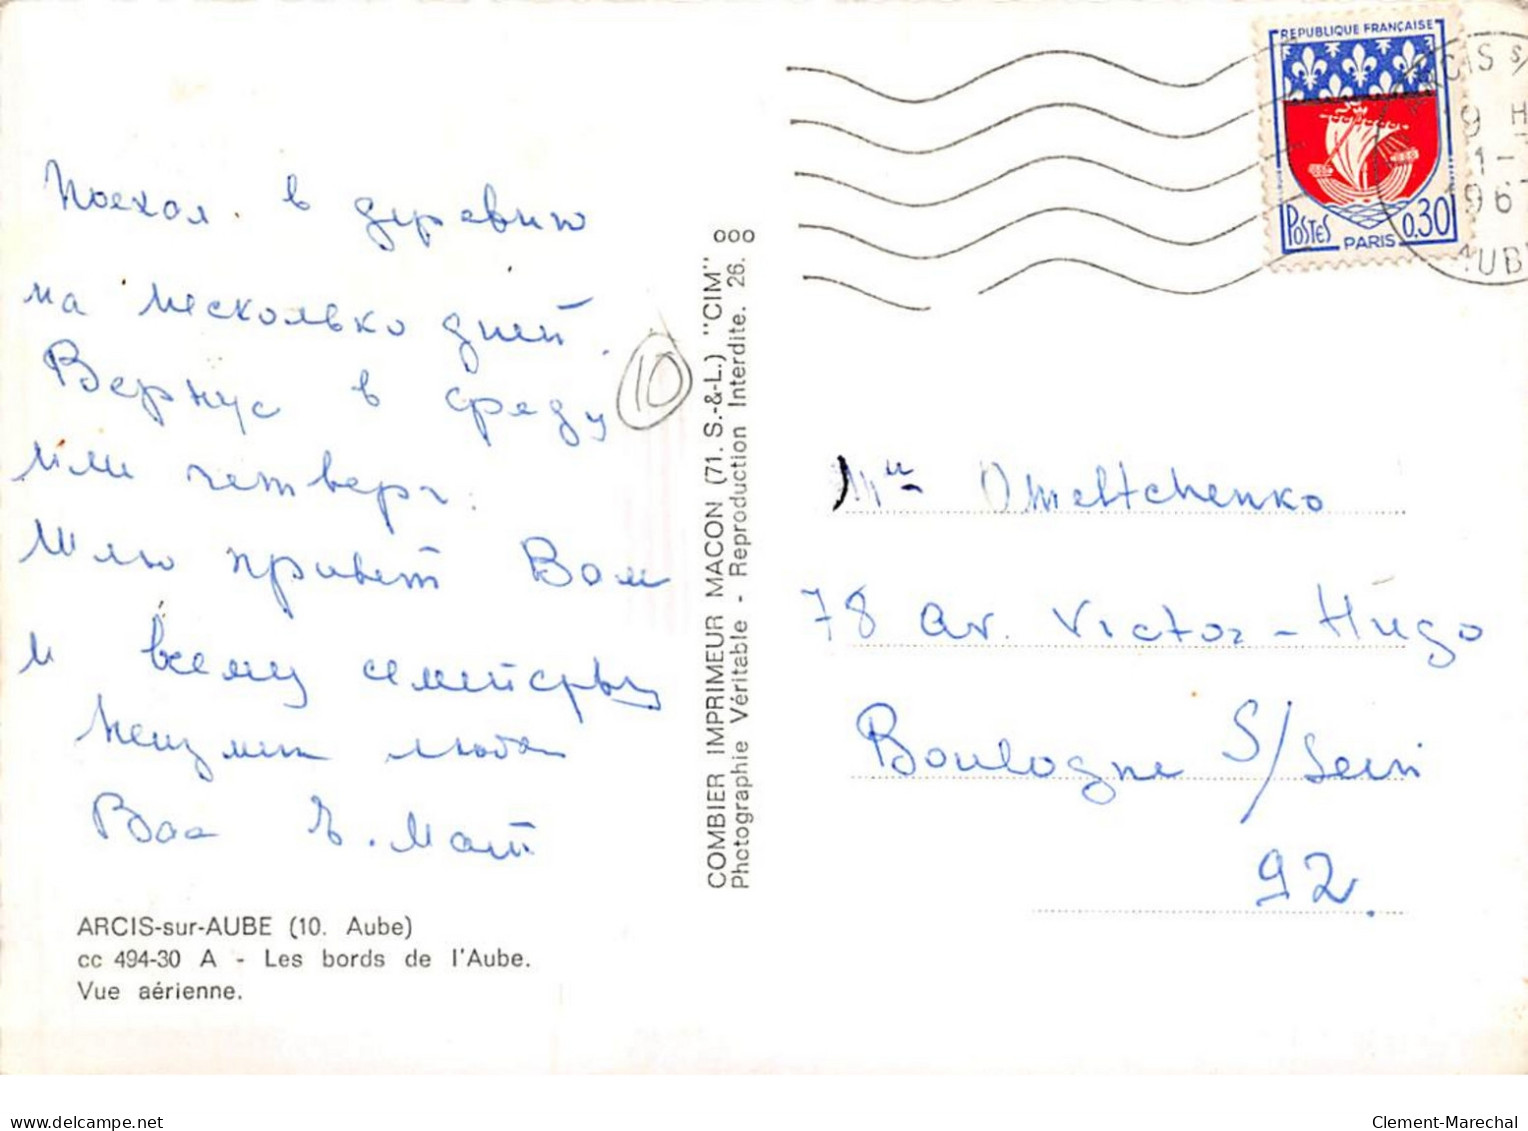 Поехал в деревню
на несколько дней.
Вернус в среду
или четверг.
Шлю привет Вам
и всему семейству
Вас
10
ARCIS-sur-AUBE (10. Aube)
cc 494-30 A - Les bords de l'Aube.
Vue aérienne.
COMBIER IMPRIMEUR MACON (71. S.-&-L.) "CIM"
Photographie Véritable - Reproduction Interdite. 26.
REPUBLIQUE FRANÇAISE
POSTES
0,30
PARIS
CIS S/
9 H
1-
196
AUB
Omeltchenko
78 av. Victor-Hugo
Boulogne S/Sein
92.
Clement-Marechal